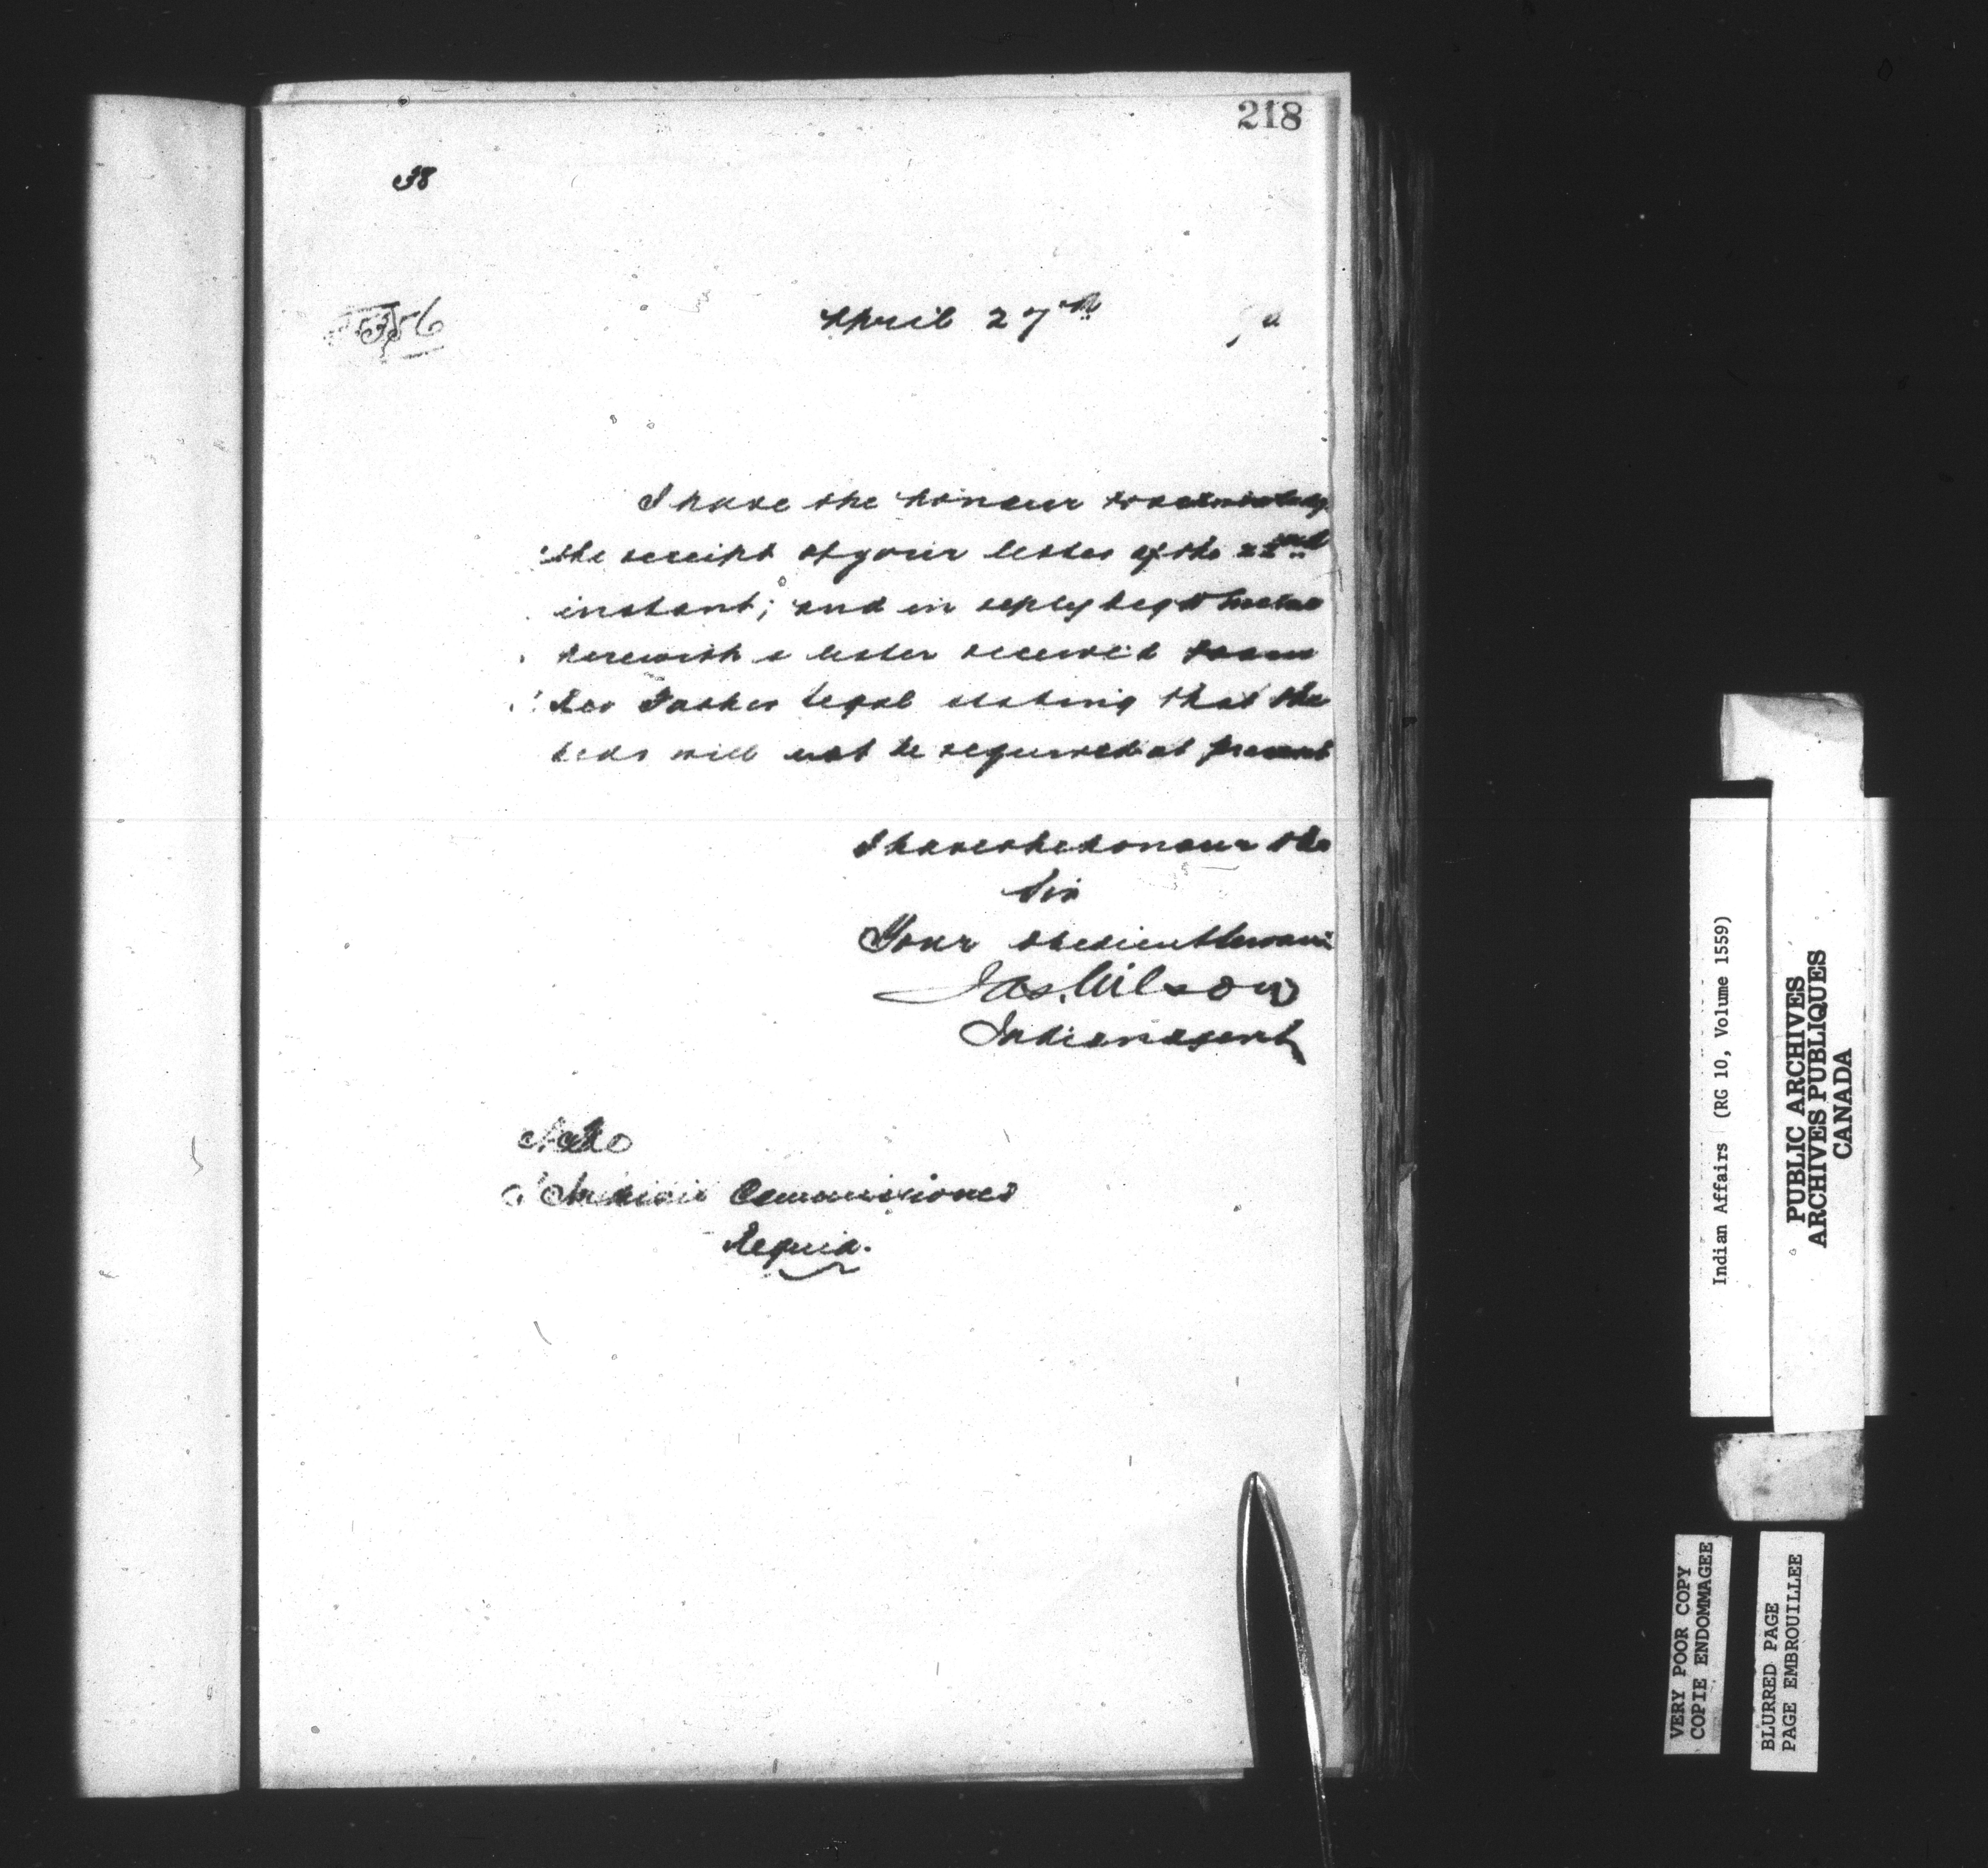 218
38
556
April 27th
I have the honour to acknowledge
the receipt of your letter of the 22nd
instant; and in reply beg to
herewith a letter received from
Rev Father Legal stating that the
beds will not be required at present
I have the honour to be
Sir
Your obedient servant
Jas. Wilson
Indian agent
The
Indian Commissioner
Regina.
Indian Affairs (RG 10, Volume 1559)
PUBLIC ARCHIVES
ARCHIVES PUBLIQUES
CANADA
VERY POOR COPY
COPIE ENDOMMAGEE
BLURRED PAGE
PAGE EMBROUILLEE